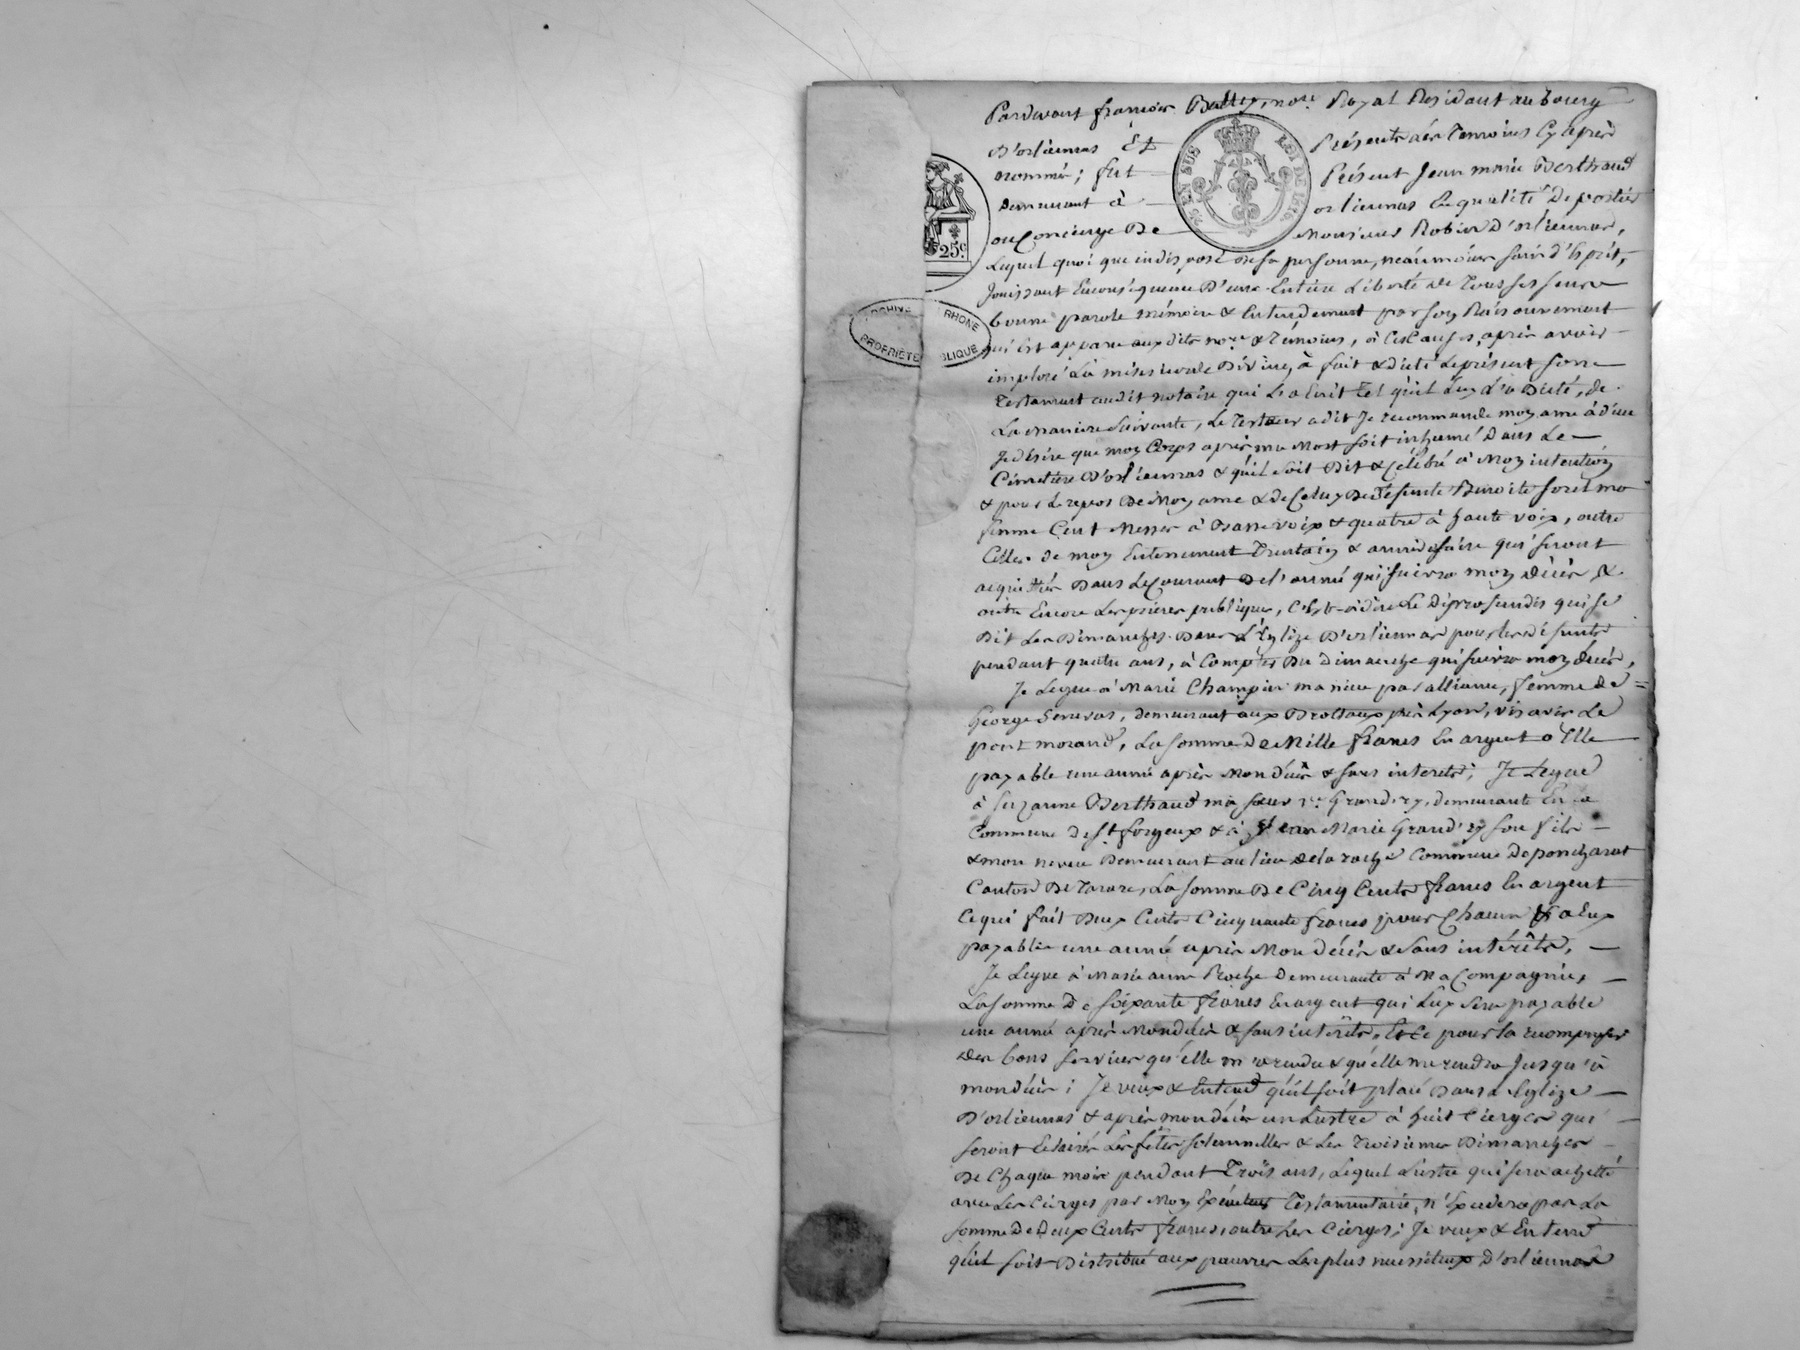 Pardevant françois Balley, nore. Royal Résidant au bourg
D'orliennas Et Présents des Temoins Cy après
nommés; fut Présent Jean marie Berthaud
demeurant à orliennas En qualité de portier
ou Concierge De Monsieur Robin D'orliennas,
Lequel quoi que indisposé de sa personne, néanmoins sain d'Esprit,
Jouissant Enconséquence D'une Entière Liberté de Tous ses sens
bonne parole mémoire & Entendement par son Raisonnement
qui Est apparu auxdits nore. & Témoins, à Ces Causes, après avoir
imploré La miséricorde Divine, à fait & dicté Le présent son
Testament audit notaire qui L'a Ecrit Tel qu'il Luy L'a Dicté, de
La maniere Suivante, Le Testateur a dit Je recommande moy ame à dieu
Je désire que moy Corps après ma Mort soit inhumé Dans Le
Cimetière D'orliennas & qu'il soit Dit & Célébré à Moy intention
& pour Le repos De Moy ame & de Celuy De Défunte Benoite forêt ma
femme Cent Messes à Basse voix & quatre à haute voix, outre
Celles de moy Enterrement Trentain & anniversaire qui seront
acquittés Dans Le Courant De l'année qui suivra moy décès &
outre Encore Les prieres publiques, C'est-à-dire Le Déprofundis qui se
Dit Les Dimanches Dans L'Eglize D'orliennas pour les défunts
pendant quatre ans, à Compter Du dimanche qui suivra moy décès,
Je Legue à Marie Champin ma niece par alliance, femme de
George Servas, demeurant aux Brotteaux près Lyon, vis avis Le
pont morand, La somme De Mille francs En argent à Elle
payable une année après Mon décès & sans interets; Je Legue
à Suzanne Berthaud ma sœur ve. Grand'ry, demeurante En la
Commune de St. forgeux & à Jean Marie Grand'ry son fils
& mon neveu Demeurant au lieu de la roche Commune de poncharat
Canton De Tarare, La somme De Cinq Cents francs En argent
Ce qui fait Deux Cents Cinquante francs pour Chacun d'Eux
payables une année après Mon décès & sans intérêts,
Je Legue à Marie anne Roche Demeurante à Ma Compagnie,
La somme De soixante francs En argent qui Luy sera payable
une année après Mon décès & sans intérêts, Et Ce pour la recompenser
des bons services qu'elle m'a rendu & qu'elle me rendra Jusqu'à
mon décès; Je veux & Entend qu'il soit placé Dans L'Eglize
D'orliennas & après mon décès un Lustre à huit Cierges qui
seront Eclairés Les fêtes solennelles & Les Troisiemes Dimanches
De Chaque mois pendant Trois ans, Lequel Lustre qui sera achetté
avec Les Cierges par Moy Exécuteur Testamentaire, n'Excédera pas La
somme De Deux Cents francs, outre Les Cierges; Je veux & Entend
qu'il soit Distribué aux pauvres Les plus necessiteux D'orliennas
25c.
EN SUS LOI DE 1816
ARCHIVES RHONE
PROPRIÉTÉ PUBLIQUE